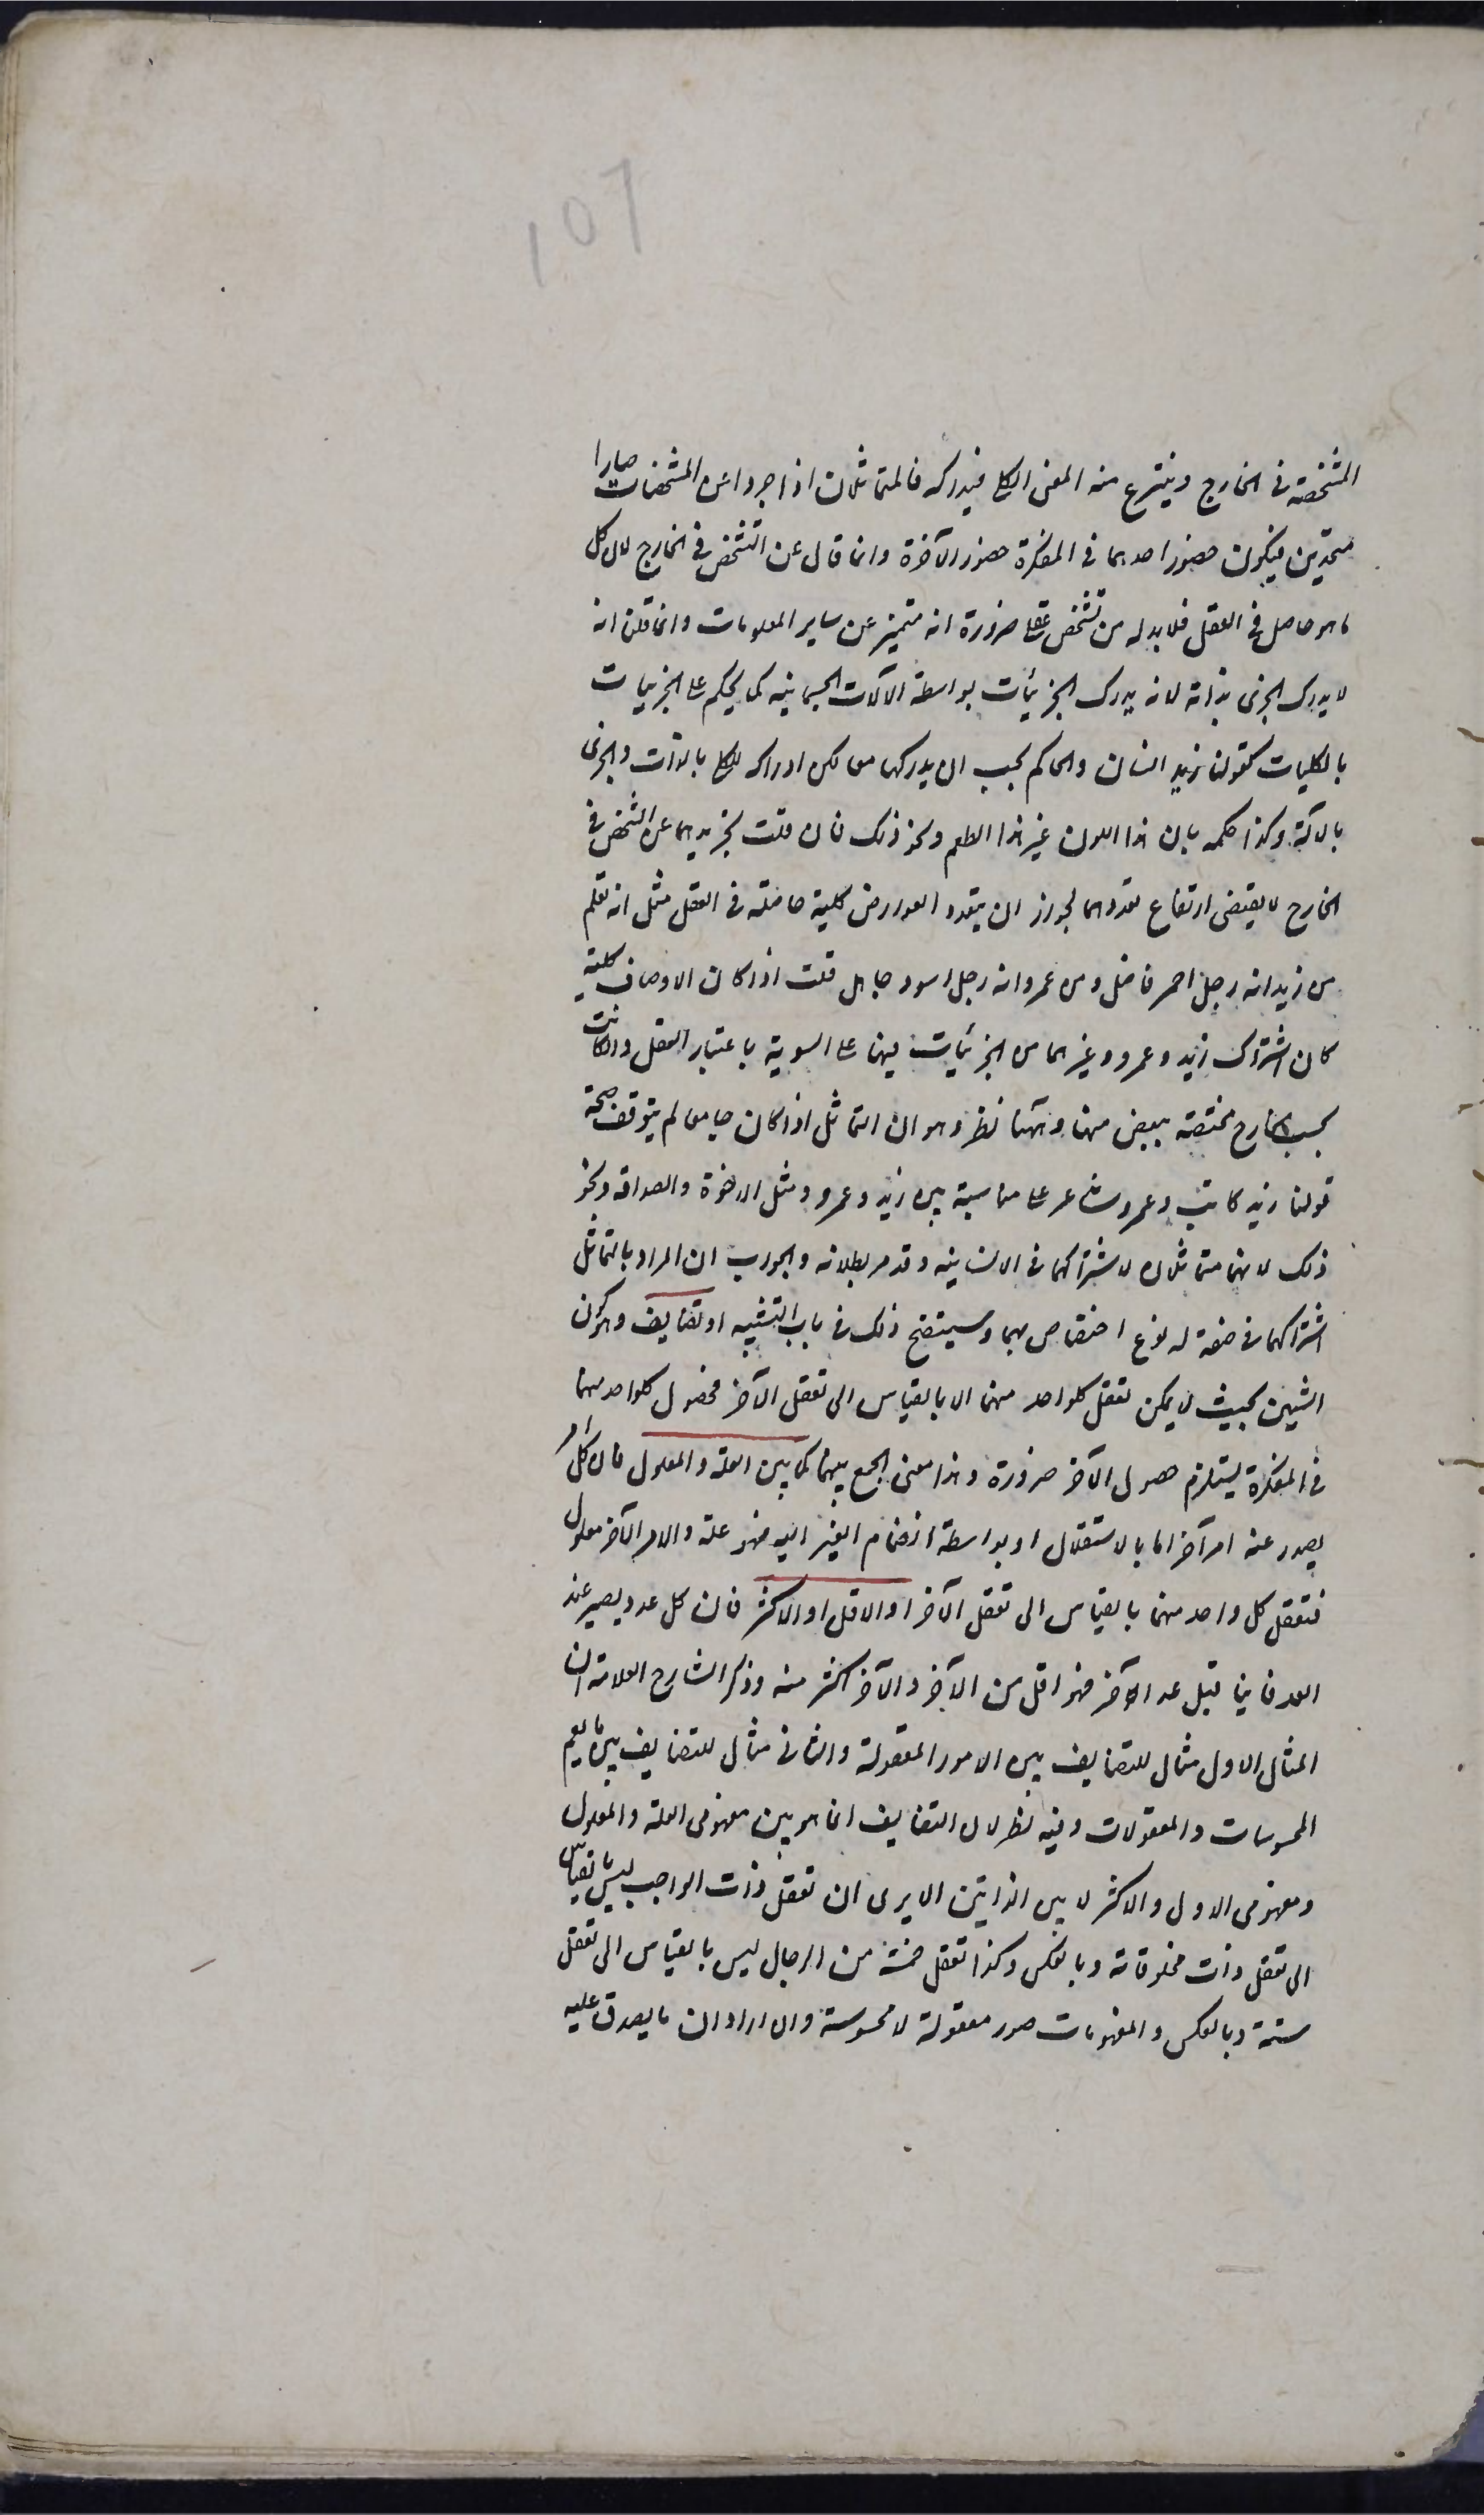 ١٥٦
المشخصة في الخارج وينتزع منه المعنى الكلي فيدركه فالمتماثلان اذا جردا عن المشخصات صارا
متحدين فيكون حضور احدهما في المفكرة حضور الآخرة وانما قال عن التشخص في الخارج لان كل
ما هو حاصل في العقل فلا بد له من تشخص عقلي ضرورة انه متميز عن ساير المعلومات وانما قلنا انه
لا يدرك الجزئي بذاته لانه يدرك الجزئيات بواسطة الآلات الجسمانية كما يحكم على الجزئيات
بالكليات كقولنا زيد انسان والحاكم يجب ان يدركهما معا لكن ادراكه للكلي بالذات والجزئي
بالآلة وكذا حكمه بان هذا اللون غير هذا الطعم ونحو ذلك فان قلت تجريدهما عن التشخص في
الخارج لا يقتضي ارتفاع تعددهما لجواز ان يتعدد العوارض كلية حاصلة في العقل مثل انه تعلم
من زيد انه رجل احمر فاضل ومن عمرو انه رجل اسود جاهل قلت اذا كان الاوصاف كلية
كان اشتراك زيد وعمرو وغيرهما من الجزئيات فيها على السوية باعتبار العقل وان كانت
بحسب الخارج مختصة ببعض منها وههنا نظر وهو ان التماثل اذا كان جامعا لم يتوقف صحة
قولنا زيد كاتب وعمرو شاعر على مناسبة بين زيد وعمرو مثل الاخوة والصداقة ونحو
ذلك لانهما متماثلان لاشتراكهما في الانسانية وقد مر بطلانه والجواب ان المراد بالتماثل
اشتراكهما في صفة له نوع اختصاص بهما وسيتضح ذلك في باب التشبيه او تضايف وهو كون
الشيئين بحيث لا يمكن تعقل كل واحد منهما الا بالقياس الى تعقل الآخر فحصول كل واحد منهما
في المفكرة يستلزم حصول الآخر ضرورة وهذا معنى الجمع بينهما كما بين العلة والمعلول فان كل امر
يصدر عنه امر آخر اما بالاستقلال او بواسطة انضمام الغير اليه فهو علة والامر الآخر معلول
فتعقل كل واحد منهما بالقياس الى تعقل الآخر او الاقل او الاكثر فان كل عدد يصير عند
العد فانيا قبل عد الآخر فهو اقل من الآخر والآخر اكثر منه وذكر الشارح العلامة ان
المثال الاول مثال للتضايف بين الامور المعقولة والثاني مثال للتضايف بين ما يعم
المحسوسات والمعقولات وفيه نظر لان التضايف انما هو بين مفهومي العلة والمعلول
ومفهومي الاول والاكثر لا بين الذاتين الا يرى ان تعقل ذات الواجب ليس بالقياس
الى تعقل ذات مخلوقاته وبالعكس وكذا تعقل خمسة من الرجال ليس بالقياس الى تعقل
ستة وبالعكس والمفهومات صور معقولة لا محسوسة وان اراد ان ما يصدق عليه